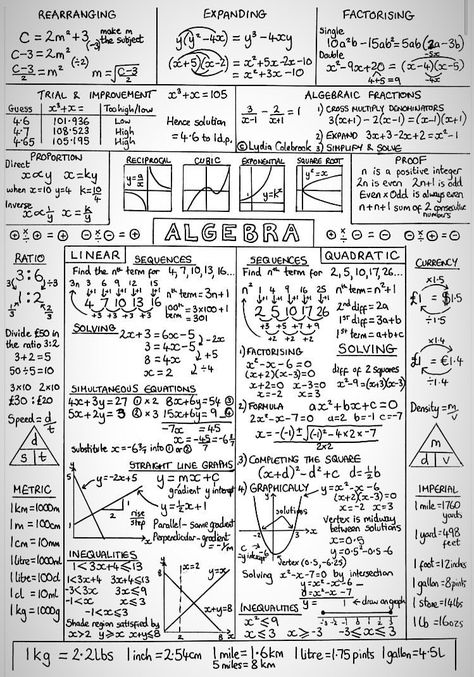 REARRANGING
C = 2m² + 3 (-3) make m the subject
C-3 = 2m² (÷2)
C-3/2 = m² m = √C-3/2
EXPANDING
y(y²-4x) = y³-4xy
(x+5)(x-2) = x²+5x-2x-10
= x²+3x-10
FACTORISING
Single
10a²b-15ab² = 5ab(2a-3b)
Double
x²-9x+20 = (x-4)(x-5)
4+5=9
TRIAL & IMPROVEMENT x³+x=105
Guess x³+x= Too high/low
4.6 101.936 Low
4.7 108.523 High
4.65 105.195 High
Hence solution
= 4.6 to 1d.p.
ALGEBRAIC FRACTIONS
3/x-1 - 2/x+1 = 1
© Lydia Colebrook
1) CROSS MULTIPLY DENOMINATORS
3(x+1)-2(x-1)=(x-1)(x+1)
2) EXPAND 3x+3-2x+2=x²-1
3) SIMPLIFY & SOLVE
PROPORTION
Direct
x∝y x=ky
when x=10 y=4 k=10/4
Inverse
x∝1/y x=k/y
RECIPROCAL
y=a/x
CUBIC
EXPONENTIAL
y=kˣ
SQUARE ROOT
y²=x
PROOF
n is a positive integer
2n is even 2n+1 is odd
Even × Odd is always even
n+n+1 sum of 2 consecutive numbers
ALGEBRA
RATIO
3:6
÷3 ÷3
1:2
Divide £50 in
the ratio 3:2
3+2=5
50÷5=10
3×10 2×10
£30 : £20
Speed = d/t
d
s t
METRIC
1km=1000m
1m=100cm
1cm=10mm
1litre=1000ml
1litre=100cl
1cl=10ml
1kg=1000g
LINEAR SEQUENCES
Find the nᵗʰ term for 4, 7, 10, 13, 16...
3n 3 6 9 12 15
↓+1 ↓+1 ↓+1 ↓+1 ↓+1
4 7 10 13 16
+3 +3 +3 +3
nᵗʰ term = 3n+1
100ᵗʰ term = 3×100+1
301
SOLVING
2x+3=6x-5
3=4x-5
8=4x
x=2
-2x
+5
÷4
SIMULTANEOUS EQUATIONS
4x+3y=27 ① ×2 8x+6y=54 ③
5x+2y=3 ② ×3 15x+6y=9 ④
-7x = 45
x=-45/7=-6 3/7
substitute x=-6 3/7 into ① or ②
STRAIGHT LINE GRAPHS
y=-2x+5
y=mx+c
gradient y intercept
y=½x+1
rise
step
Parallel-same gradient
Perpendicular-gradient
= -1/m
INEQUALITIES
1<3x+4≤13
1<3x+4 3x+4≤13
-3<3x 3x≤9
-1<x x≤3
-1<x≤3
Shade region satisfied by
x>2 y≥x x+y≤8
x=2
y=x
x+y=8
2 8
SEQUENCES QUADRATIC
Find nᵗʰ term for 2, 5, 10, 17, 26...
n² 1 4 9 16 25
↓+1 ↓+1 ↓+1 ↓+1 ↓+1
2 5 10 17 26
+3 +5 +7 +9
+2 +2 +2
nᵗʰ term = n²+1
2nd diff=2a
1st diff=3a+b
1st term=a+b+c
1) FACTORISING
x²-x-6=0
(x+2)(x-3)=0
x+2=0 x-3=0
x=-2 x=3
SOLVING
diff of 2 squares
x²-9=(x+3)(x-3)
2) FORMULA ax²+bx+c=0
2x²-x-7=0 a=2 b=-1 c=-7
x=-(-1)±√(-1)²-4×2×-7
2×2
3) COMPLETING THE SQUARE
(x+d)²-d²+c d=½b
4) GRAPHICALLY
y=x²-x-6
(x+2)(x-3)=0
x=-2 x=3
solutions
Vertex is midway
between solutions
x=0.5
y=0.5²-0.5-6
c
y intercept
Vertex (0.5,-6.25)
Solving x²-x-7=0 by intersection
y=x²-x-6
y=1 ← draw on graph
INEQUALITIES
x²≤9
x≤3 x≥-3 -3≤x≤3
-3 -2 -1 0 1 2 3
CURRENCY
×1.5
£1 = $1.5
÷1.5
×1.4
£1 = €1.4
÷1.4
Density = m/v
m
d v
IMPERIAL
1 mile=1760 yards
1 foot=12inches
1 gallon=8pints
1 stone=14lbs
1 lb=16ozs
1kg = 2.2lbs 1inch=2.54cm 1mile=1.6km 1litre=1.75pints 1gallon=4.5L
5miles=8km